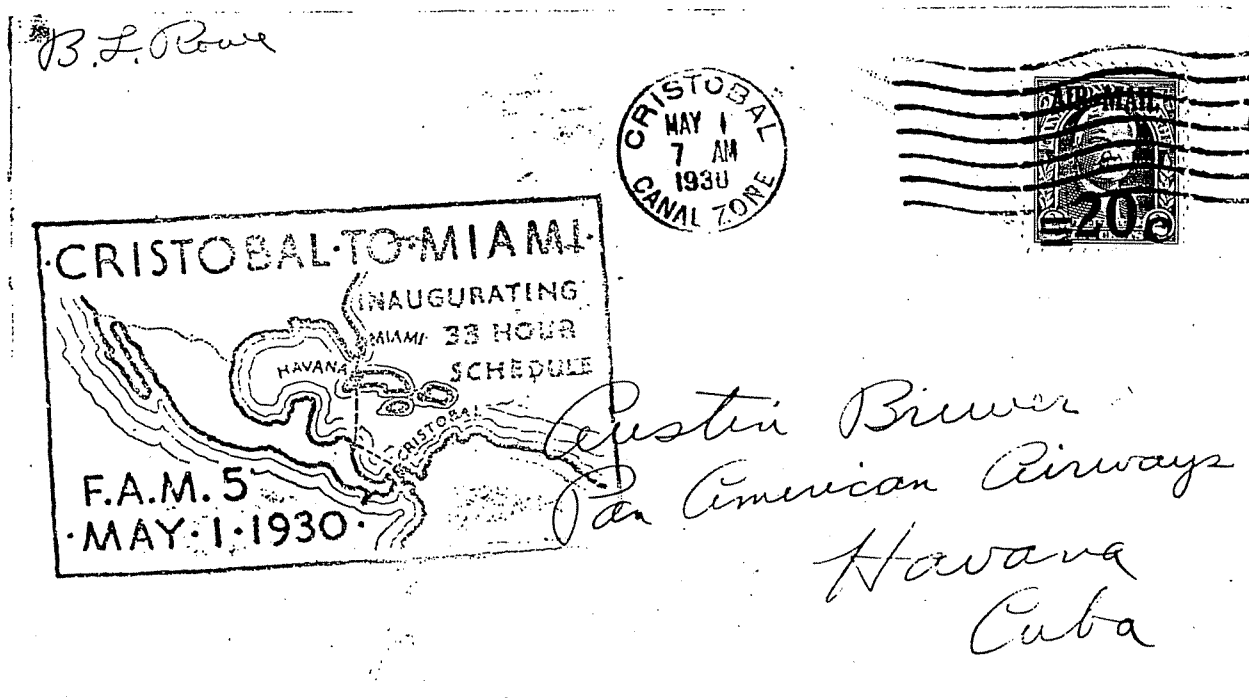 B. L. Rowe
CRISTOBAL
MAY 1
7 AM
1930
CANAL ZONE
AIR MAIL
20
·CRISTOBAL·TO·MIAMI·
INAUGURATING
MIAMI· 33 HOUR
SCHEDULE
HAVANA
CRISTOBAL
F.A.M. 5
·MAY·1·1930·
Austin Brewer
Pan American Airways
Havana
Cuba